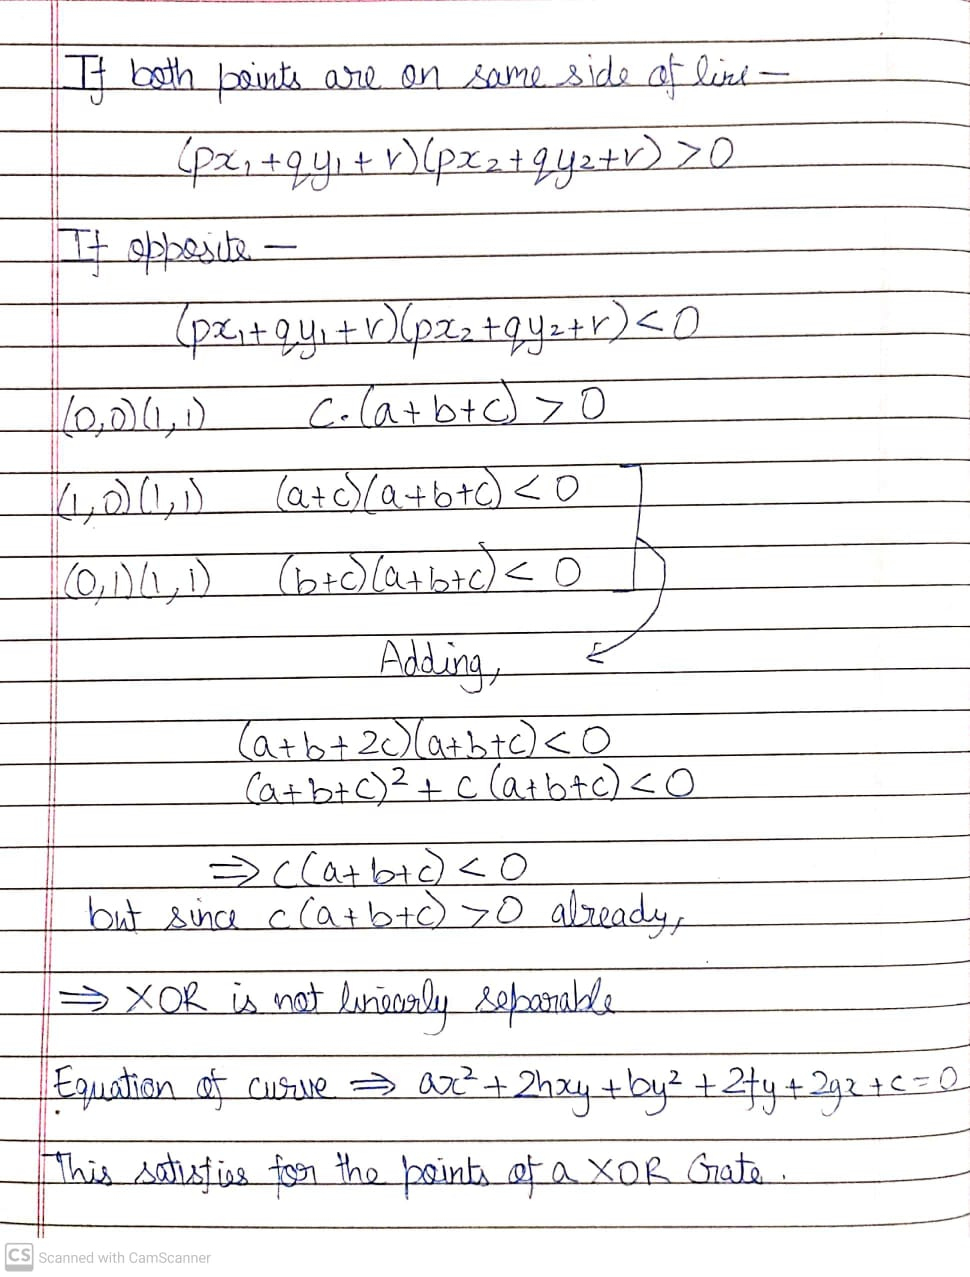 If both points are on same side of line —
(px₁+qy₁+r)(px₂+qy₂+r) >0
If opposite —
(px₁+qy₁+r)(px₂+qy₂+r) <0
(0,0)(1,1) c.(a+b+c) > 0
(1,0)(1,1) (a+c)(a+b+c) < 0
(0,1)(1,1) (b+c)(a+b+c) < 0
Adding,
(a+b+2c)(a+b+c) < 0
(a+b+c)² + c(a+b+c) < 0
⇒ c(a+b+c) < 0
but since c(a+b+c) >0 already,
⇒ XOR is not linearly separable
Equation of curve ⇒ ax²+2hxy+by²+2fy+2gx+c=0
This satisfies for the points of a XOR Gate.
CS Scanned with CamScanner